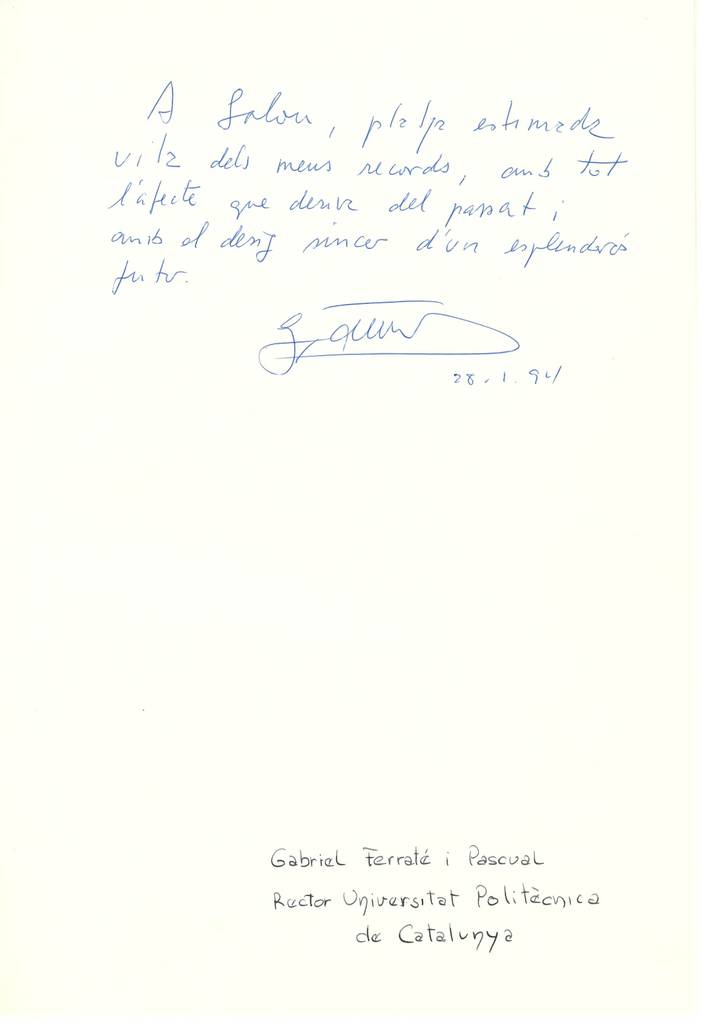 A Salou, platja estimada
vila dels meus records, amb tot
l'afecte que deriva del passat i
amb el desig sincer d'un esplendorós
futur.
28.1.94
Gabriel Ferraté i Pascual
Rector Universitat Politècnica
de Catalunya